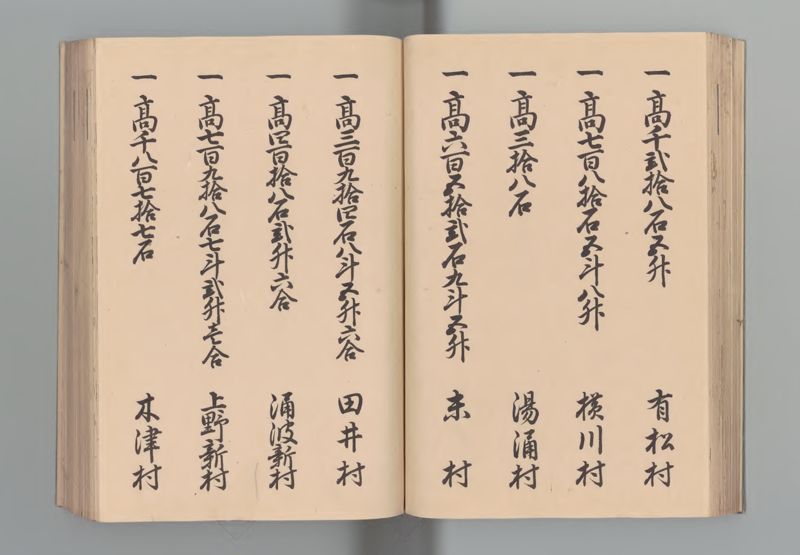 一 高千弐拾八石五升 有松村
一 高七百八拾石五斗八升 横川村
一 高三拾八石 湯涌村
一 高六百五拾弐石九斗五升 末村
一 高三百九拾四石八斗五升六合 田井村
一 高四百拾八石弐升六合 涌波新村
一 高七百九拾八石七斗弐升壱合 上野新村
一 高千八百七拾七石 木津村